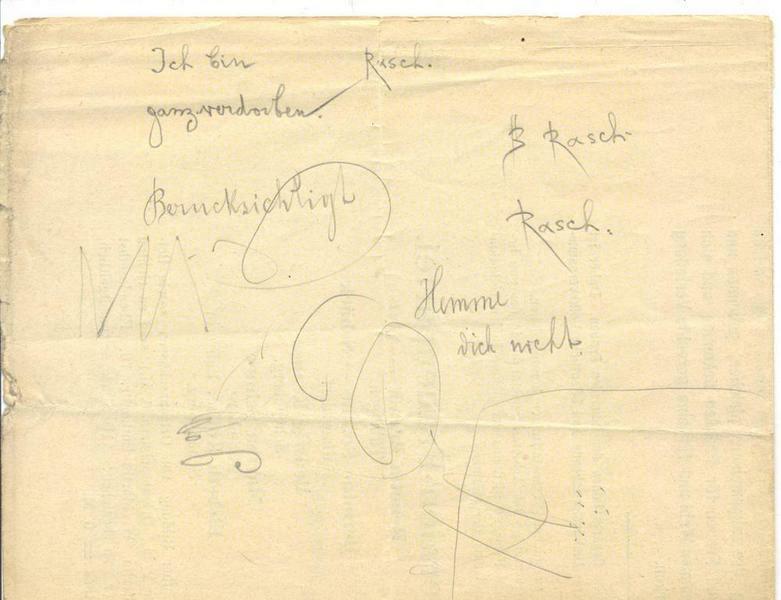 Ich bin Rasch.
ganz verdorben.
B Rasch
Berucksichtigt
Rasch.
Hemme
dich nicht.